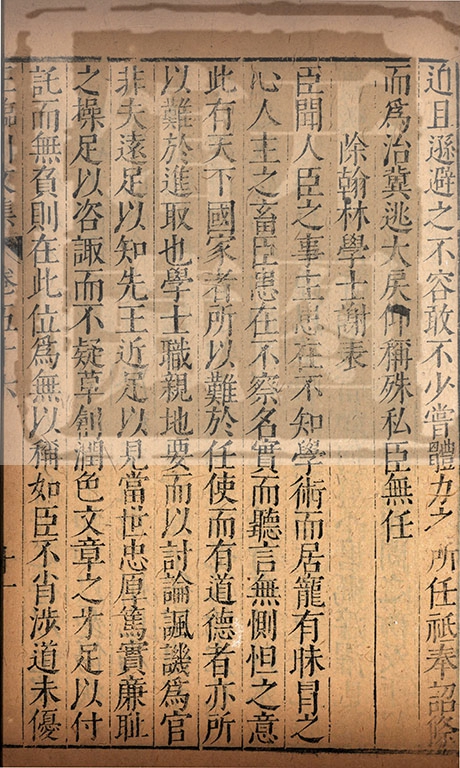 迫且遜避之不容敢不少嘗體力之所任祗奉詔條
而爲治冀逃大戾仰稱殊私臣無任
除翰林學士謝表
臣聞人臣之事主患在不知學術而居寵有昧冒之
心人主之畜臣患在不察名實而聽言無惻怛之意
此有天下國家者所以難於任使而有道德者亦所
以難於進取也學士職親地要而以討論諷譏爲官
非夫遠足以知先王近足以見當世忠厚篤實廉耻
之操足以咨諏而不疑草創潤色文章之才足以付
託而無負則在此位爲無以稱如臣不肖涉道未優
王臨川文集 卷五十六